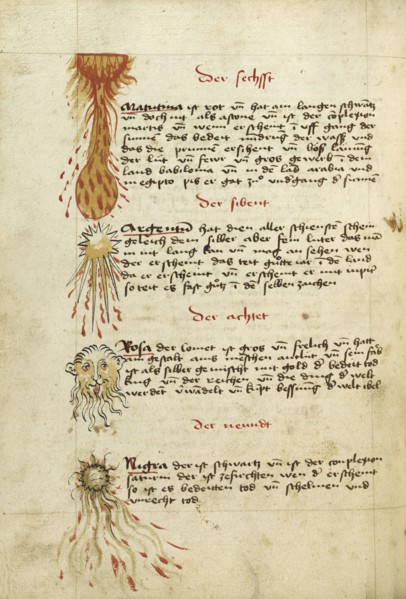 Der sechsst
Matutina ist rot vn̄ hat ain langen schwātz
vn̄ doch nit als astone vn̄ ist der cōplexion
martis vn̄ wenn er scheint ī vff gang der
sunnen das bedeüt mīdrūg der wassz vnd
das die prunnen ersihent vn̄ böß
der lüt vn̄ fewr vn̄ gros gewerb ī dem
land babilonia vn̄ in dē lād arabia vnd
in egipto pis er gat zū vndgang d' sunnen
Der sibent
Argentū hat dien aller schienste schein
geleich dem silber aber sein luter das mā
in nit lang kan vn̄ mag an sehen wen
der erscheint das teit gūtte iar ī de land
da er erscheint vn̄ erscheint er mit
so teit es fast gūtz ī de selben zaichen
Der achtet
Rosa der comet ist gros vn̄ frelich vn̄ hatt
ain gestalt ains mēschen antlüt vn̄ sein farb
ist als silber gemischt mit gold d' bedeit tod
king vn̄ der reichen vn̄ die ding d' welt
werdēt vwādelt vn̄ kūpt bessrung d' welt
Der neundt
Nigra der ist schwartz vn̄ ist der conplexion
saturni der ist zefirchten wen d' erscheint
so ist es bedeuten tod vn̄ schelmen vnd
vnrecht tod